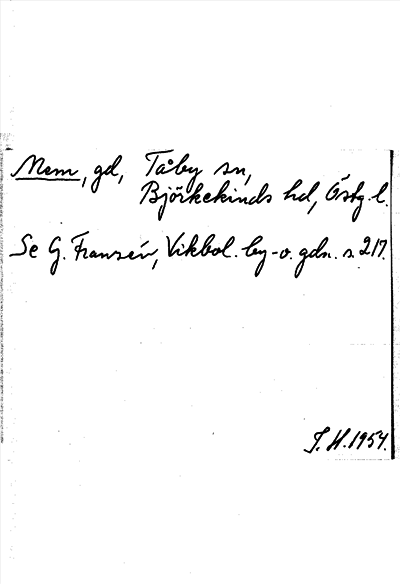 Mem, gd, Tåby sn,
Björkekinds hd, Östg. l.
Se G. Franzén, Vikbol. by- o. gdn. s. 217.
J. H. 1954.